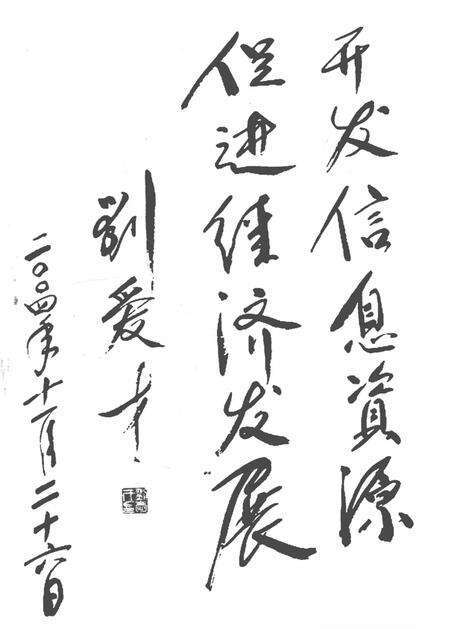 开发信息資源
促进经济发展
劉爱才
二〇〇四年十一月二十六日